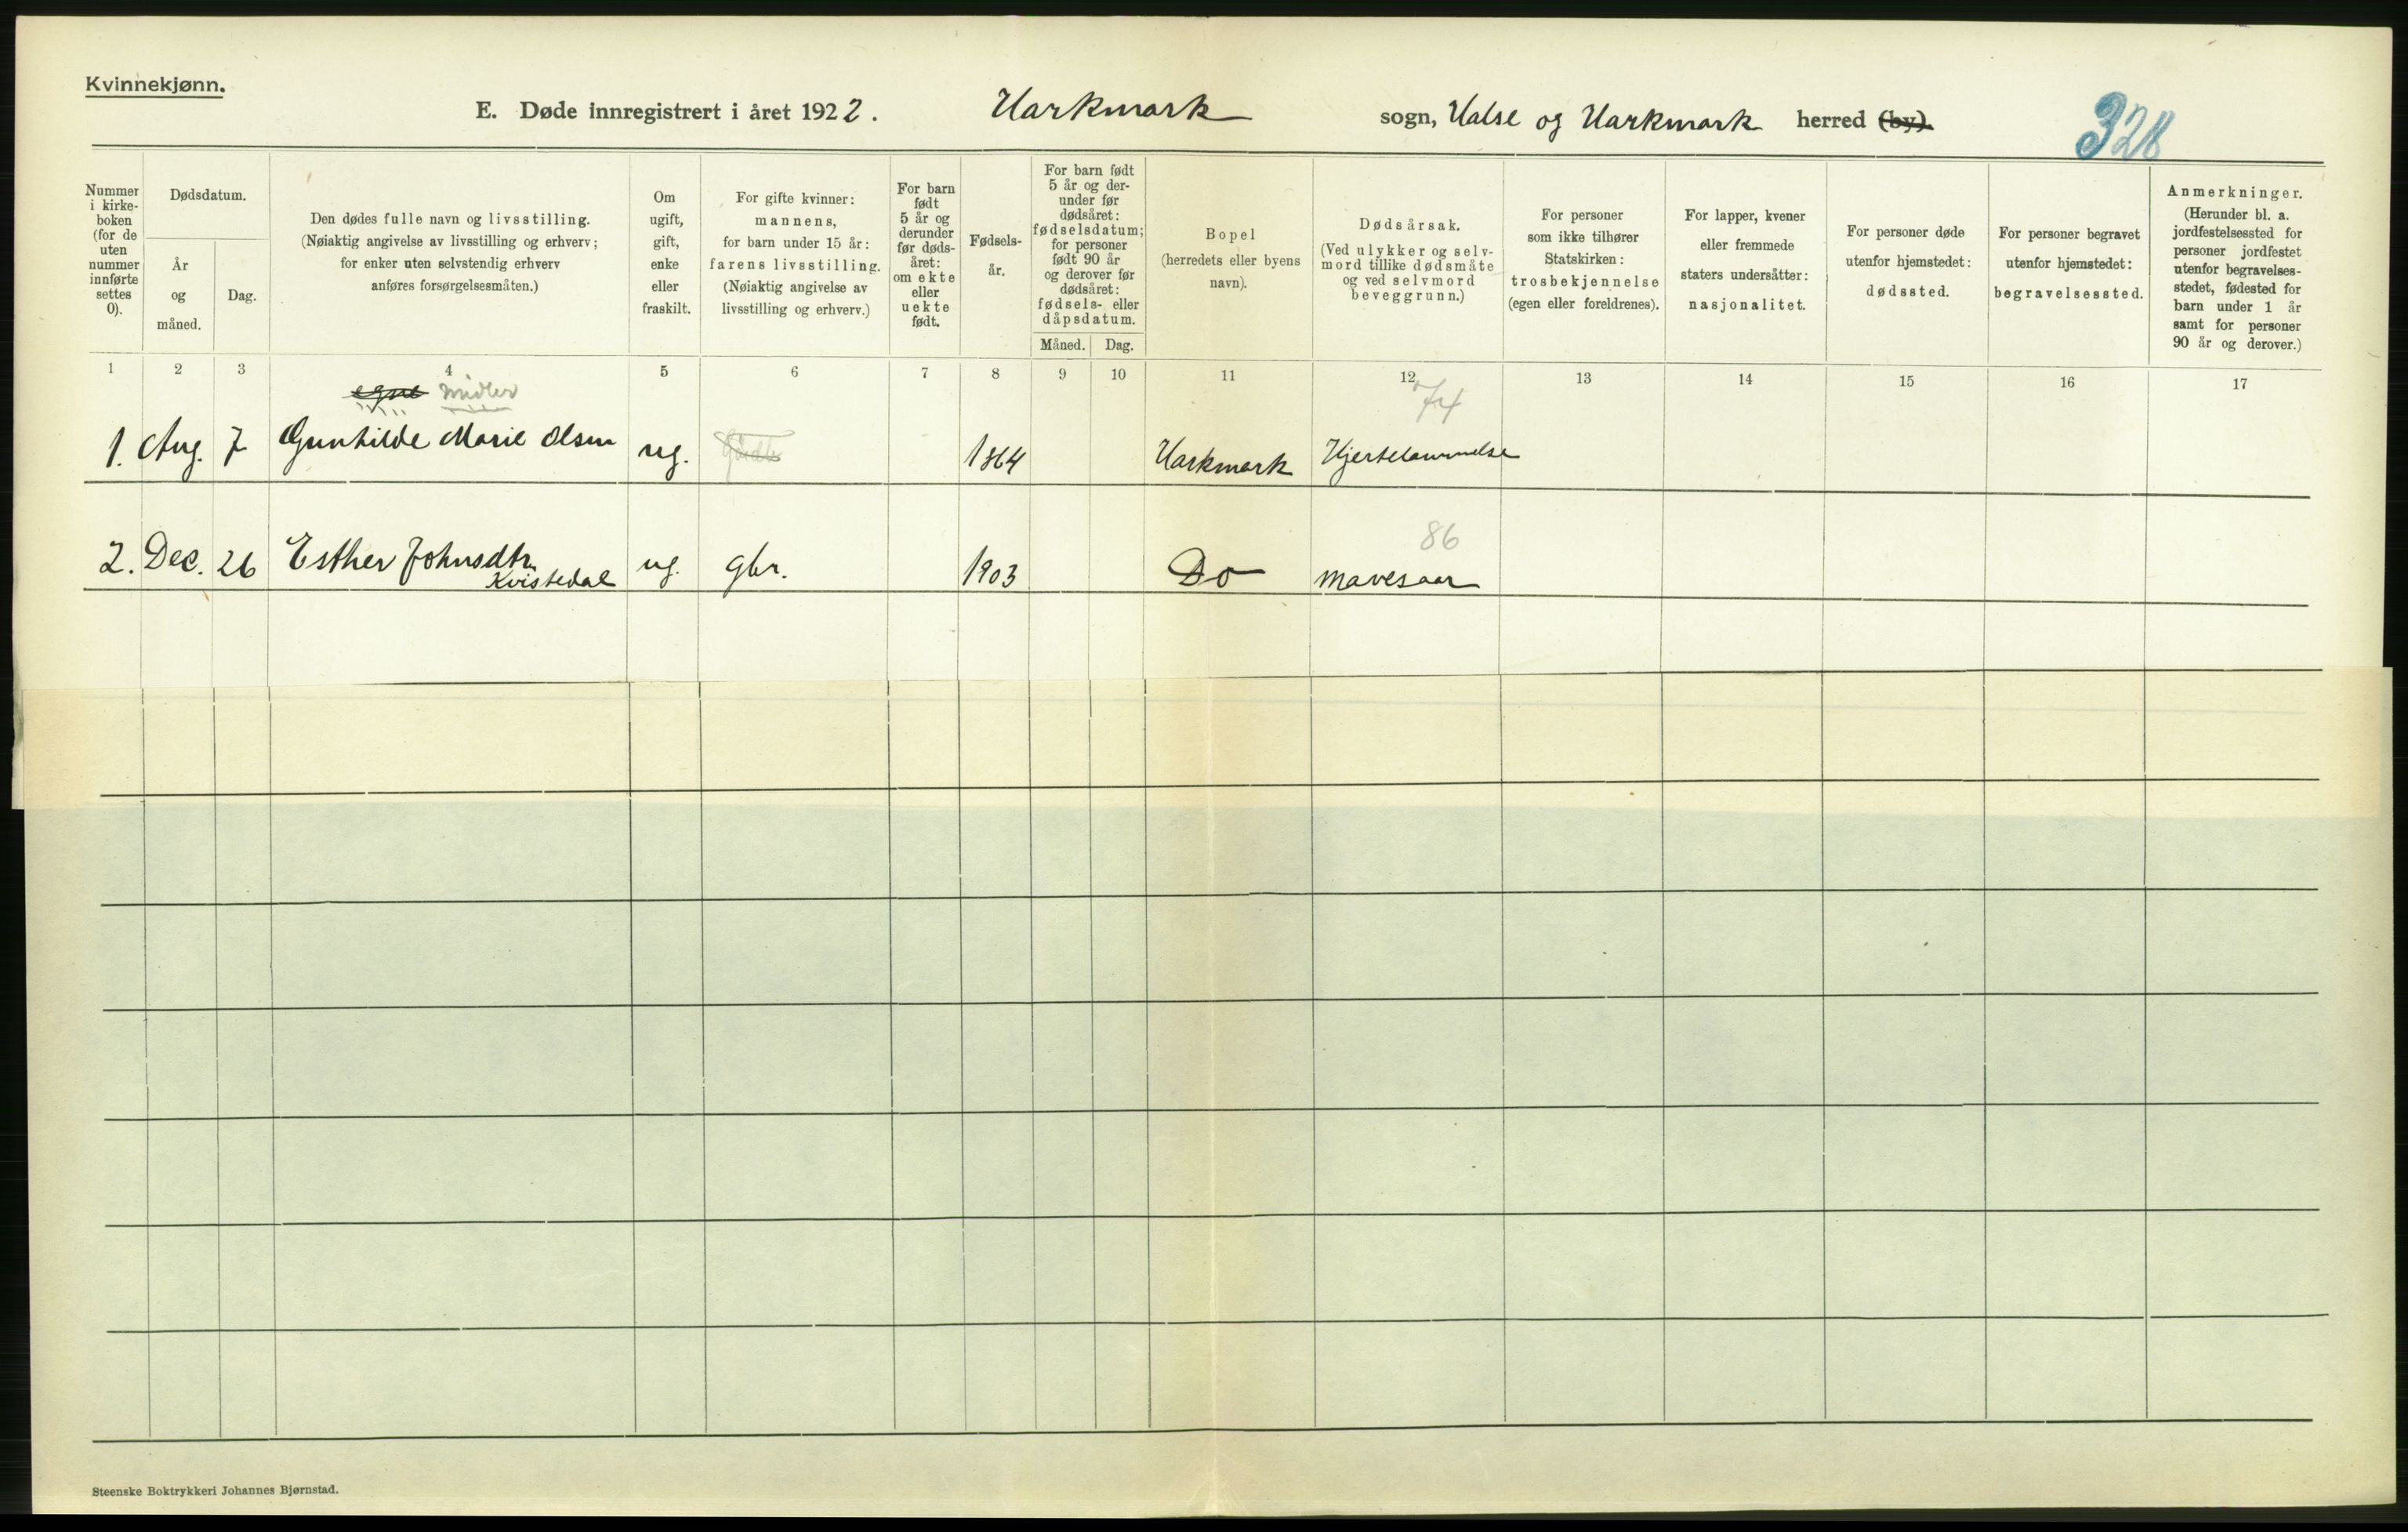 Kvinnekjønn.
E. Døde innregistrert i året 1922. Harkmark sogn, Halse og Harkmark herred (by).
328
Nummer i kirke-boken (for de uten nummer innførte settes 0).
Dødsdatum.
År og måned.
Dag.
Den dødes fulle navn og livsstilling.
(Nøiaktig angivelse av livsstilling og erhverv;
for enker uten selvstendig erhverv
anføres forsørgelsesmåten.)
Om
ugift,
gift,
enke
eller
fraskilt.
For gifte kvinner:
mannens,
for barn under 15 år:
farens livsstilling.
(Nøiaktig angivelse av
livsstilling og erhverv.)
For barn
født
5 år og
derunder
før døds-
året:
om ekte
eller
uekte
født.
Fødsels-
år.
For barn født
5 år og der-
under før
dødsåret:
fødselsdatum;
for personer
født 90 år
og derover før
dødsåret:
fødsels- eller
dåpsdatum.
Måned. Dag.
Bopel
(herredets eller byens
navn).
Dødsårsak.
(Ved ulykker og selv-
mord tillike dødsmåte
og ved selvmord
beveggrunn.)
For personer
som ikke tilhører
Statskirken:
trosbekjennelse
(egen eller foreldrenes).
For lapper, kvener
eller fremmede
staters undersåtter:
nasjonalitet.
For personer døde
utenfor hjemstedet:
dødssted.
For personer begravet
utenfor hjemstedet:
begravelsessted.
Anmerkninger.
(Herunder bl. a.
jordfestelsessted for
personer jordfestet
utenfor begravelses-
stedet, fødested for
barn under 1 år
samt for personer
90 år og derover.)
1 2 3 4 5 6 7 8 9 10 11 12 13 14 15 16 17
egne midler 74
1. Aug. 7 Gunhilde Marie Olsen ug. 1864 Harkmark Hjertelammelse
86
2. Dec. 26 Esther Johnsdtr. ug. gbr. 1903 Do mavesaar
Kvistedal
Steenske Boktrykkeri Johannes Bjørnstad.